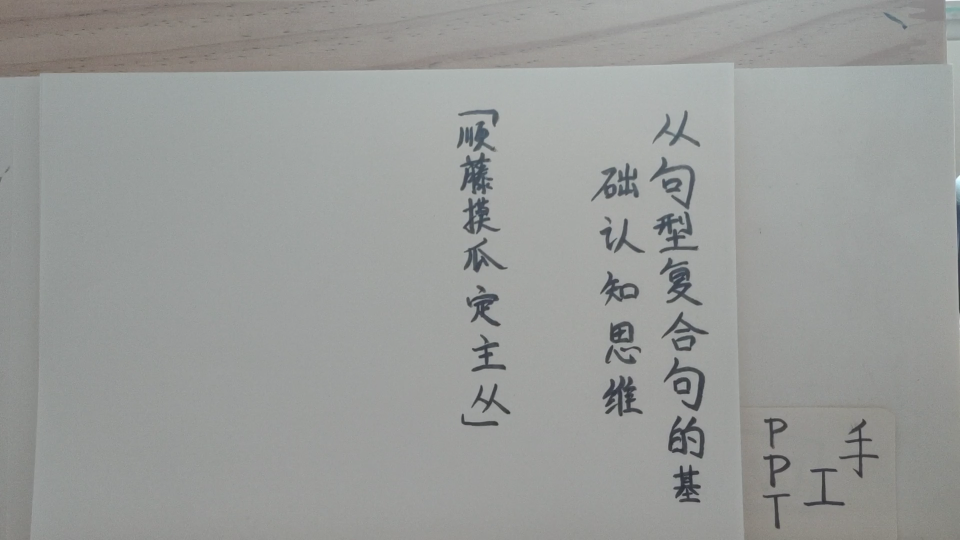 从句型复合句的基
础认知思维
「顺藤摸瓜定主从」
手
工
PPT